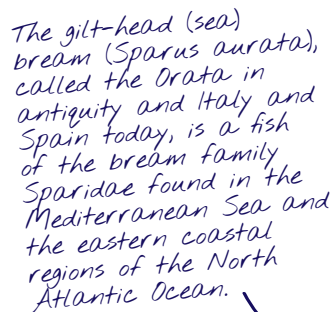 The gilt-head (sea)
bream (Sparus aurata),
called the Orata in
antiquity and Italy and
Spain today, is a fish
of the bream family
Sparidae found in the
Mediterranean Sea and
the eastern coastal
regions of the North
Atlantic Ocean.